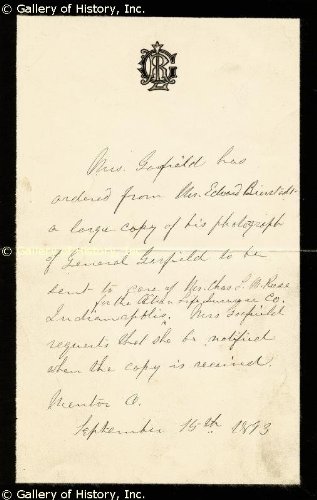 © Gallery of History, Inc.
Mrs. Garfield has
ordered from Mr. Edward Bierstadt
a large copy of his photograph
of General Garfield to be
sent to care of Mr. Chas. J. M. Rose
for the Life Insurance Co.
Indianapolis. Mrs Garfield
requests that she be notified
when the copy is received.
Mentor O.
September 15th 1893
© Gallery of History, Inc.
© Gallery of History, Inc.
© Gallery of History, Inc.